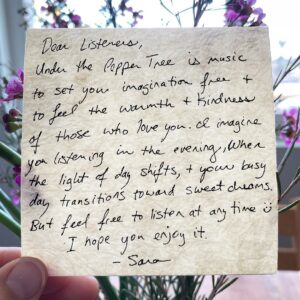 Dear Listeners,
Under the Pepper Tree is music
to set your imagination free +
to feel the warmth + kindness
of those who love you. I imagine
you listening in the evening, when
the light of day shifts, + your busy
day transitions toward sweet dreams.
But feel free to listen at any time ☺
I hope you enjoy it.
- Sara